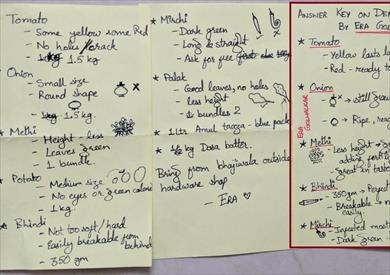 Tomato
- Some yellow some Red
- No holes/crack
- 1kg 1.5 kg
Onion
- Small size
- Round shape
- 1kg 1.5 kg.
* Methi
- Height - less
- Leaves green
- 1 bundle.
* Potato
- Medium size
- No eyes or green color
- 1 kg.
* Bhindi
- Not too soft / hard
- Easily breakable from behind
- 350 gm
* Mirchi
- Dark green
- Long & straight
- Ask for free
* Palak
- Good leaves, no holes
- less height
- 2 bundles
* 1 ltr Amul taaza - blue pack
* 1/2 kg Dosa batter.
Bring from bhajiwala outside
hardware shop
- ERA
ANSWER KEY ON
BY ERA
* Tomato
- Yellow lasts
- Red - ready to
* Onion
→ still
→ Ripe,
ERA GOLWALKAR
* Methi
- Less height →
great in taste
* Bhindi
- 350gm → Perfect
- Breakable →
easily.
* Mirchi
- Dark green